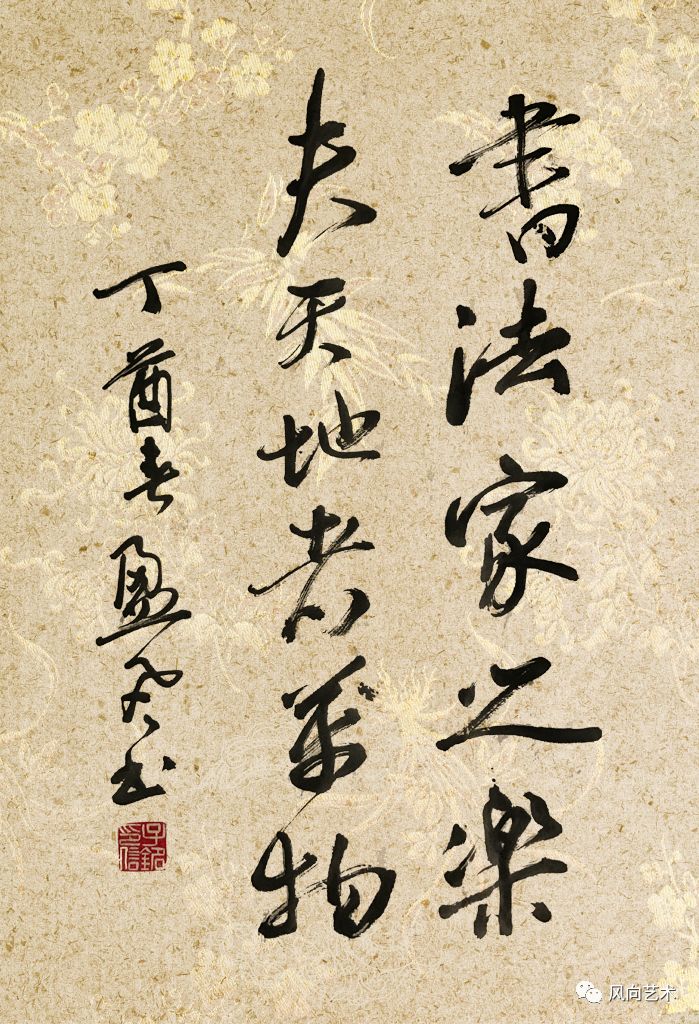 書法家之樂
夫天地者萬物
丁酉春盈
書
風向艺术